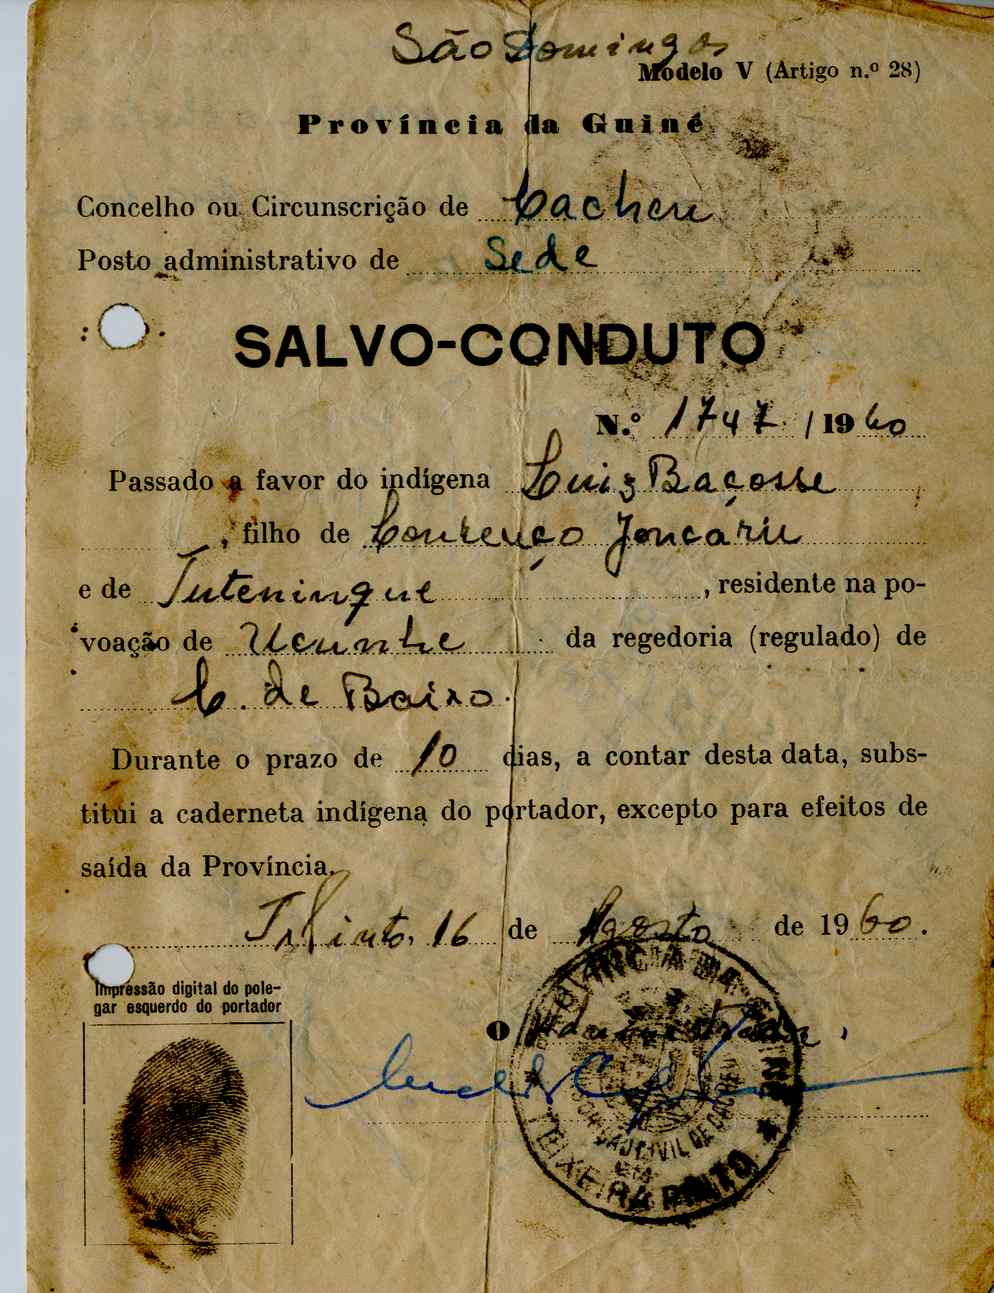 São Domingos
Modelo V (Artigo n.º 28)
Província da Guiné
Concelho ou Circunscrição de Cacheu
Posto administrativo de Sede
SALVO-CONDUTO
N.º 1747/1960
Passado a favor do indígena Luiz Baçosse
, filho de Lourenço Joncáru
e de Tuteningue, residente na po-
voação de Ucunhe da regedoria (regulado) de
C. de Baixo.
Durante o prazo de 10 dias, a contar desta data, subs-
titúi a caderneta indígena do portador, excepto para efeitos de
saída da Província.
16 de Agosto de 1960.
Impressão digital do pole-
gar esquerdo do portador
O Administrador,
PROVÍNCIA DA GUINÉ
CIVIL DE CACHEU
EM
TEIXEIRA PINTO